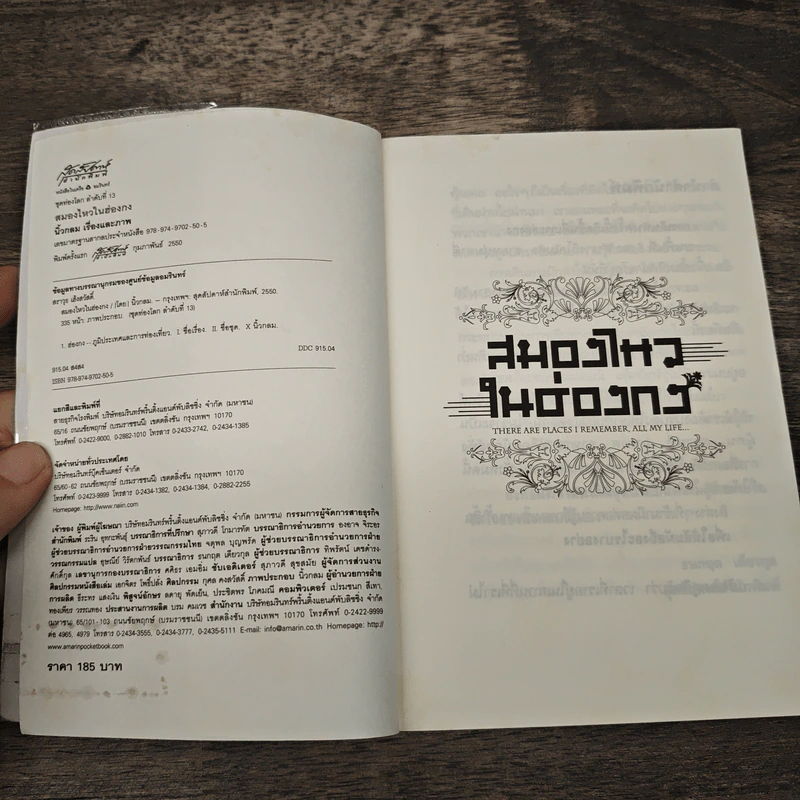 สุดสัปดาห์
สำนักพิมพ์
หนังสือในเครือ อมรินทร์
ชุดท่องโลก ลำดับที่ 13
สมองไหวในฮ่องกง
นิ้วกลม เรื่องและภาพ
เลขมาตรฐานสากลประจำหนังสือ 978-974-9702-50-5
พิมพ์ครั้งแรก สุดสัปดาห์ กุมภาพันธ์ 2550
ข้อมูลทางบรรณานุกรมของศูนย์ข้อมูลอมรินทร์
สราวุธ เฮ้งสวัสดิ์.
สมองไหวในฮ่องกง / (โดย) นิ้วกลม. – กรุงเทพฯ: สุดสัปดาห์สำนักพิมพ์, 2550.
335 หน้า ภาพประกอบ (ชุดท่องโลก ลำดับที่ 13)
1. ฮ่องกง—ภูมิประเทศและการท่องเที่ยว. I. ชื่อเรื่อง. II. ชื่อชุด. X นิ้วกลม.
DDC 915.04
915.04 ส4ส4
ISBN 978-974-9702-50-5
แยกสีและพิมพ์ที่
สายธุรกิจโรงพิมพ์ บริษัทอมรินทร์พริ้นติ้งแอนด์พับลิชชิ่ง จำกัด (มหาชน)
65/16 ถนนชัยพฤกษ์ (บรมราชชนนี) เขตตลิ่งชัน กรุงเทพฯ 10170
โทรศัพท์ 0-2422-9000, 0-2882-1010 โทรสาร 0-2433-2742, 0-2434-1385
จัดจำหน่ายทั่วประเทศโดย
บริษัทอมรินทร์บุ๊คเซ็นเตอร์ จำกัด
65/60-62 ถนนชัยพฤกษ์ (บรมราชชนนี) เขตตลิ่งชัน กรุงเทพฯ 10170
โทรศัพท์ 0-2423-9999 โทรสาร 0-2434-1382, 0-2434-1384, 0-2882-2255
Homepage: http://www.naiin.com
เจ้าของ ผู้พิมพ์ผู้โฆษณา บริษัทอมรินทร์พริ้นติ้งแอนด์พับลิชชิ่ง จำกัด (มหาชน) กรรมการผู้จัดการสายธุรกิจ
สำนักพิมพ์ ระริน อุทกะพันธุ์ บรรณาธิการที่ปรึกษา สุภาวดี โกมารทัต บรรณาธิการอำนวยการ องอาจ จิระอร
ผู้ช่วยบรรณาธิการอำนวยการฝ่ายวรรณกรรมไทย จตุพล บุญพรัด ผู้ช่วยบรรณาธิการอำนวยการฝ่าย
วรรณกรรมแปล อุษณีย์ วิรัตกพันธ์ บรรณาธิการ ธนกฤต เดียวกุล ผู้ช่วยบรรณาธิการ ทิพรัตน์ เดชดำรง-
ศักดิ์กุล เลขานุการกองบรรณาธิการ ศศิธร เอมอิ่ม ซับเอดิเตอร์ สุภาวดี สุขสมัย ผู้จัดการส่วนงาน
ศิลปกรรมหนังสือเล่ม เอกจิตร โพธิ์ปลั่ง ศิลปกรรม กุศล คงสวัสดิ์ ภาพประกอบ นิ้วกลม ผู้อำนวยการฝ่าย
การผลิต ธีระทร แตงเงิน พิสูจน์อักษร ลดาอุ พัดเย็น, ประชิตพร โบคมณี คอมพิวเตอร์ เปรมชนก สีเทา,
ทองเพียว วรรณทอง ประสานงานการผลิต บรม คมเวช สำนักงาน บริษัทอมรินทร์พริ้นติ้งแอนด์พับลิชชิ่ง จำกัด
(มหาชน) 65/101-103 ถนนชัยพฤกษ์ (บรมราชชนนี) เขตตลิ่งชัน กรุงเทพฯ 10170 โทรศัพท์ 0-2422-9999
ต่อ 4965, 4979 โทรสาร 0-2434-3555, 0-2434-3777, 0-2435-5111 E-mail: info@amarin.co.th Homepage: http://
www.amarinpocketbook.com
ราคา 185 บาท
สมองไหว
ในฮ่องกง
THERE ARE PLACES I REMEMBER, ALL MY LIFE...